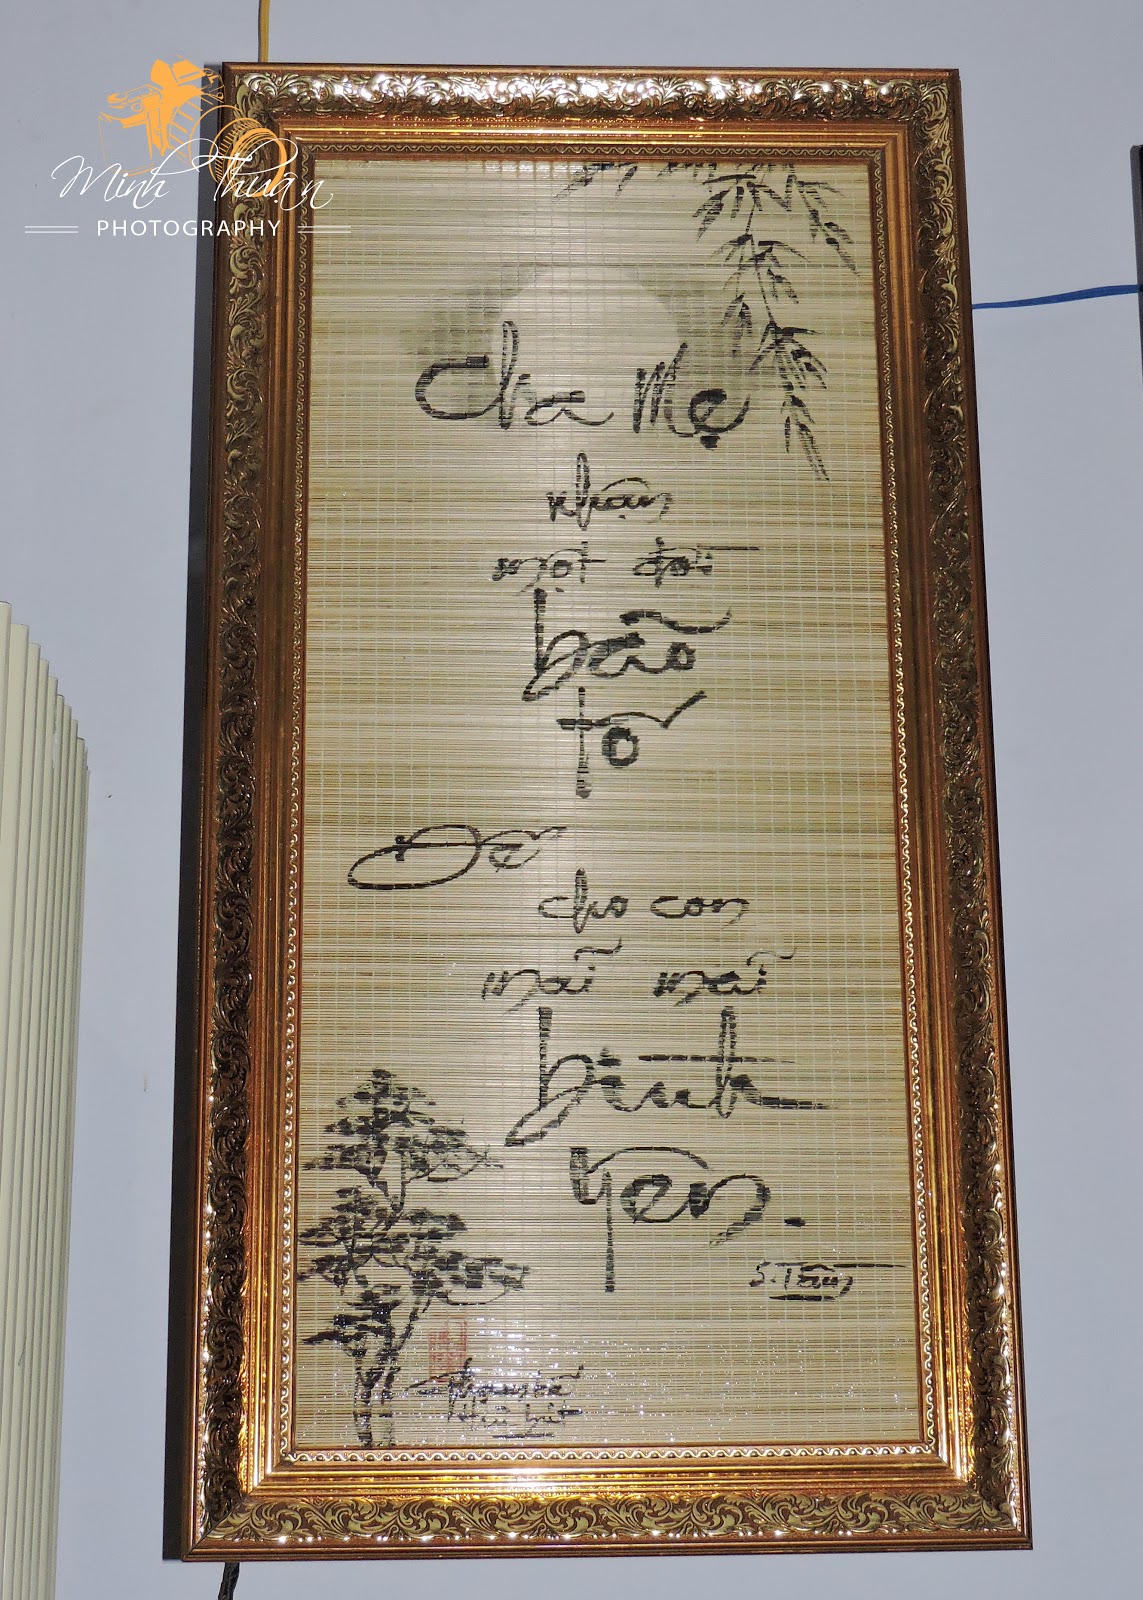 Minh Thuan
PHOTOGRAPHY
Cha Mẹ
nhận
một đời
bão
tố
Để
cho con
mãi mãi
bình
yên.